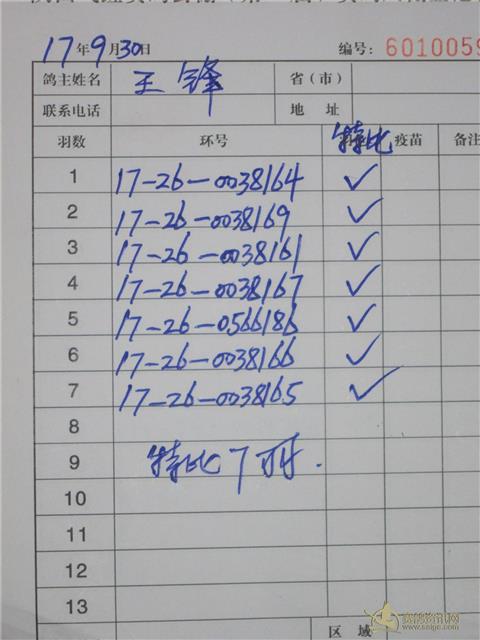 17年9月30日 编号: 6010059
鸽主姓名 王锋 省(市)
联系电话 地址
羽数 环号 特比 疫苗 备注
1 17-26-0038164 ✓
2 17-26-0038169 ✓
3 17-26-0038161 ✓
4 17-26-0038167 ✓
5 17-26-0566186 ✓
6 17-26-0038166 ✓
7 17-26-0038165 ✓
8
9 特比7羽.
10
11
12
13
区域
www.saige.com